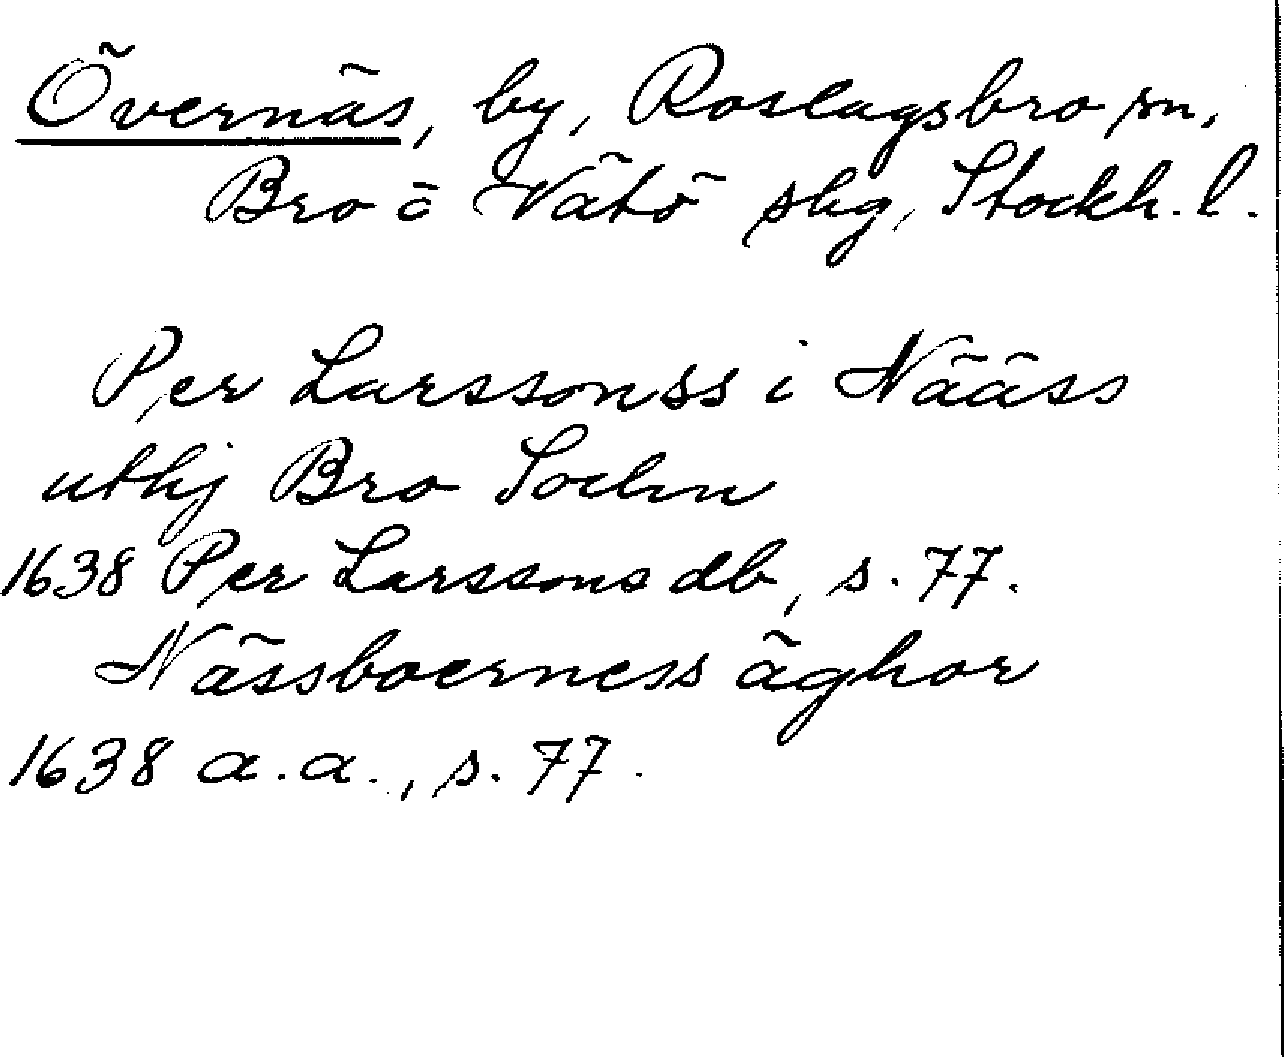 Övernäs, by, Roslagsbro sn,
Bro o Vätö skg, Stockh. l.
Per Larssonss i Nääss
uthj Bro Sochn
1638 Per Larssons db, s. 77.
Nässboerness äghor
1638 a.a., s. 77.